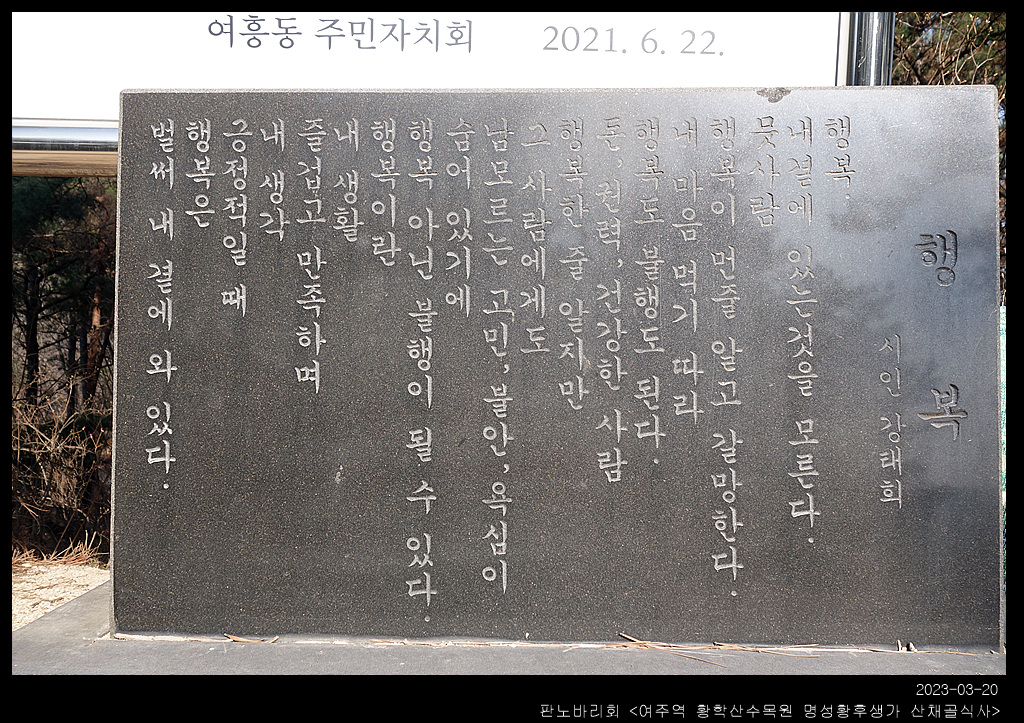 여흥동 주민자치회 2021. 6. 22.
행 복
시인 강태희
행복.
내곁에 있는것을 모른다.
뭇사람
행복이 먼줄 알고 갈망한다.
내 마음 먹기 따라
행복도 불행도 된다.
돈, 권력, 건강한 사람
행복한 줄 알지만
그 사람에게도
남모르는 고민, 불안, 욕심이
숨어 있기에
행복 아닌 불행이 될 수 있다.
행복이란
내 생활
즐겁고 만족하며
내 생각
긍정적일 때
행복은
벌써 내 곁에 와 있다.
2023-03-20
판노바리회 <여주역 황학산수목원 명성황후생가 산채골식사>